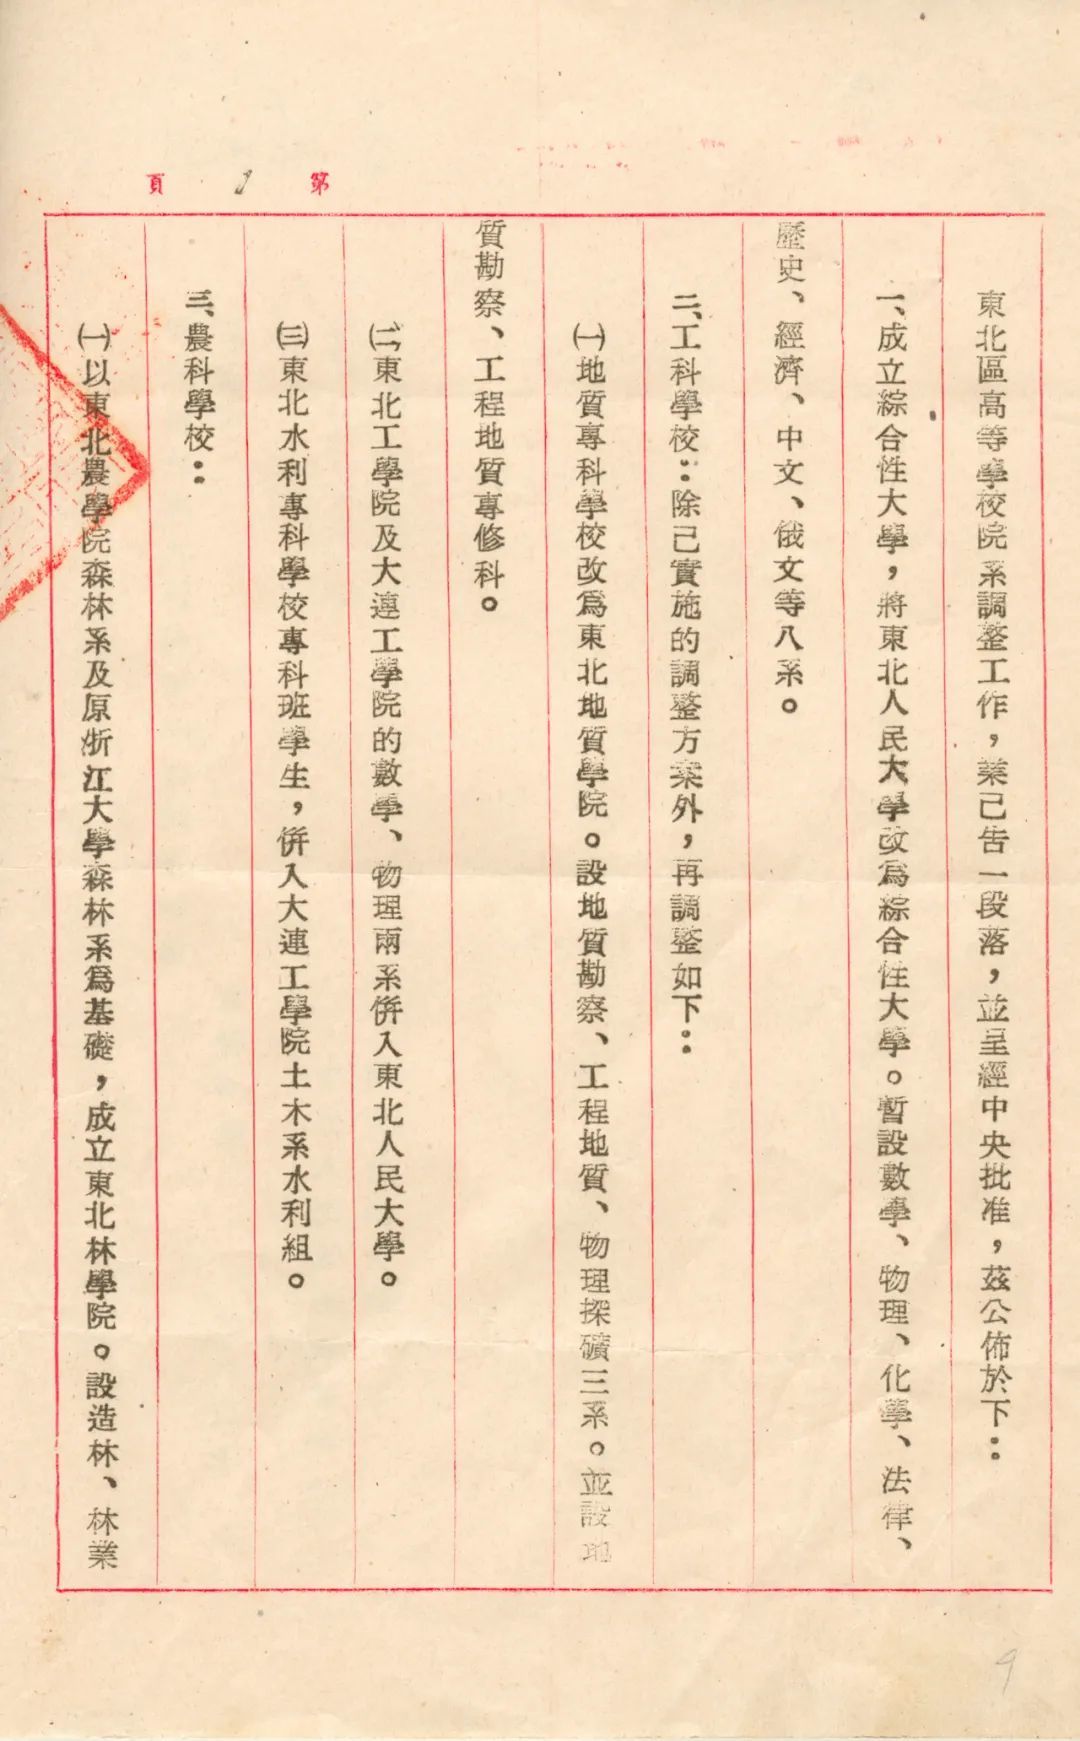 第 1 頁
東北區高等學校院系調整工作，業己告一段落，並呈經中央批准，茲公佈於下：
一、成立綜合性大學，將東北人民大學改爲綜合性大學。暫設數學、物理、化學、法律、
歷史、經濟、中文、俄文等八系。
二、工科學校：除己實施的調整方案外，再調整如下：
㈠地質專科學校改爲東北地質學院。設地質勘察、工程地質、物理探礦三系。並設地
質勘察、工程地質專修科。
㈡東北工學院及大連工學院的數學、物理兩系併入東北人民大學。
㈢東北水利專科學校專科班學生，併入大連工學院土木系水利組。
三、農科學校：
㈠以東北農學院森林系及原浙江大學森林系爲基礎，成立東北林學院。設造林、林業
9